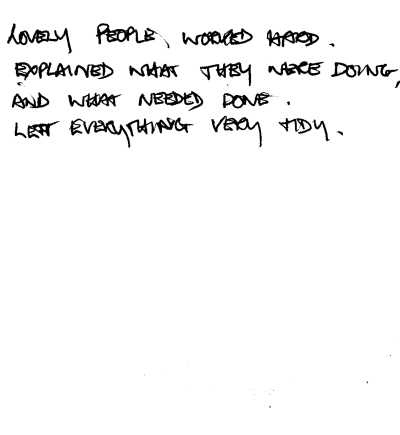 LOVELY PEOPLE, WORKED HARD.
EXPLAINED WHAT THEY WERE DOING,
AND WHAT NEEDED DONE.
LEFT EVERYTHING VERY TIDY.